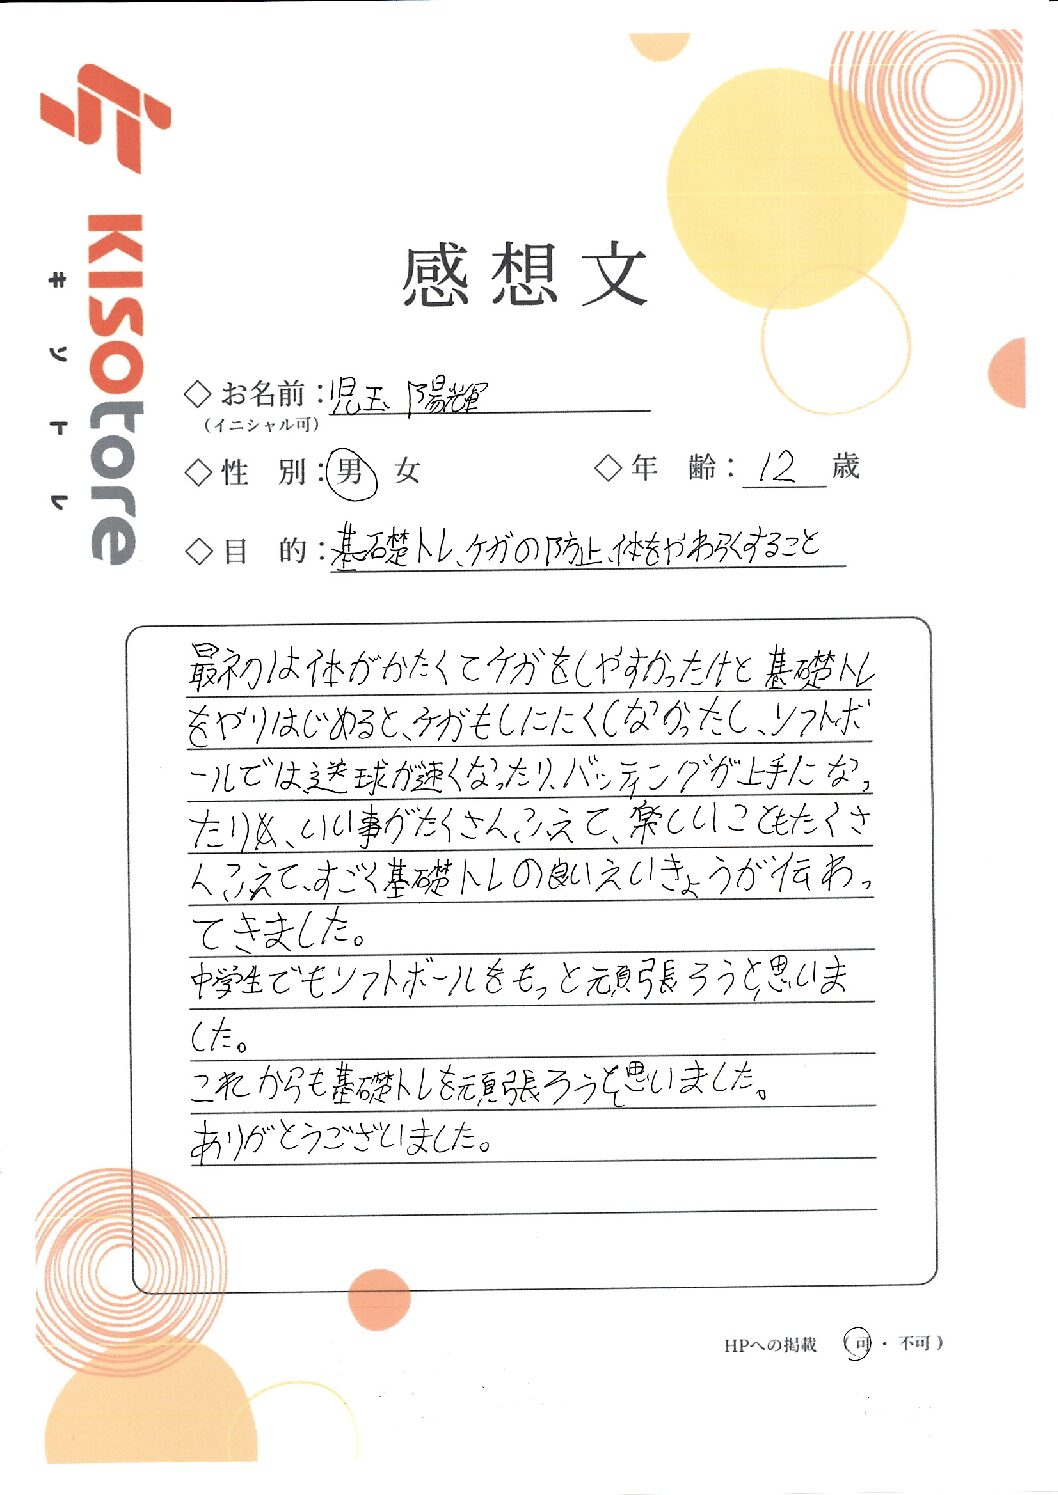 KISOtore
キソトレ
感想文
◇お名前：児玉 陽輝
（イニシャル可）
◇性 別：男 女 ◇年 齢：12歳
◇目 的：基礎トレ、ケガの防止、体をやわらくすること
最初は体がかたくてケガをしやすかったけと基礎トレ
をやりはじめると、ケガもしににくしなかったし、ソフトボ
ールでは送球が速くなったり、バッティングが上手になっ
たり、いい事がたくさんふえて、楽しいこともたくさ
んふえて、すごく基礎トレの良いえいきょうが伝わっ
てきました。
中学生でもソフトボールをもっと頑張ろうと思いま
した。
これからも基礎トレを頑張ろうと思いました。
ありがとうございました。
HPへの掲載 （可・不可）